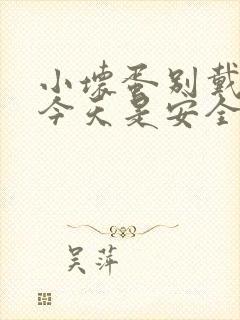 小坏蛋别戴
今天是安全
吴萍